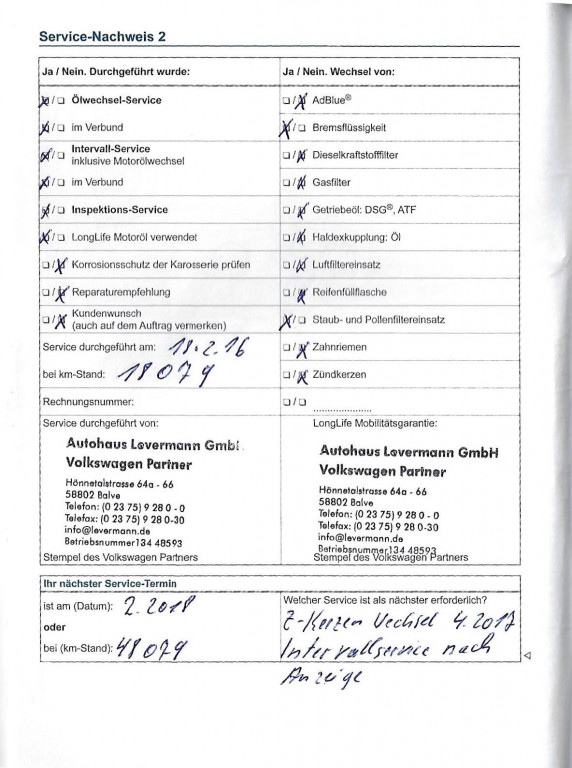 Service-Nachweis 2
Ja / Nein. Durchgeführt wurde:
☒/☐ Ölwechsel-Service
☒/☐ im Verbund
☒/☐ Intervall-Service
inklusive Motorölwechsel
☒/☐ im Verbund
☒/☐ Inspektions-Service
☒/☐ LongLife Motoröl verwendet
☐/☒ Korrosionsschutz der Karosserie prüfen
☐/☒ Reparaturempfehlung
☐/☒ Kundenwunsch
(auch auf dem Auftrag vermerken)
Service durchgeführt am: 18.2.16
bei km-Stand: 18079
Rechnungsnummer:
Service durchgeführt von:
Autohaus Levermann GmbH
Volkswagen Partner
Hönnetalstrasse 64a - 66
58802 Balve
Telefon: (0 23 75) 9 28 0 - 0
Telefax: (0 23 75) 9 28 0-30
info@levermann.de
Betriebsnummer134 48593
Stempel des Volkswagen Partners
Ja / Nein. Wechsel von:
☐/☒ AdBlue®
☒/☐ Bremsflüssigkeit
☐/☒ Dieselkraftstofffilter
☐/☒ Gasfilter
☐/☒ Getriebeöl: DSG®, ATF
☐/☒ Haldexkupplung: Öl
☐/☒ Luftfiltereinsatz
☐/☒ Reifenfüllflasche
☒/☐ Staub- und Pollenfiltereinsatz
☐/☒ Zahnriemen
☐/☒ Zündkerzen
☐/☐ ....................
LongLife Mobilitätsgarantie:
Autohaus Levermann GmbH
Volkswagen Partner
Hönnetalstrasse 64a - 66
58802 Balve
Telefon: (0 23 75) 9 28 0 - 0
Telefax: (0 23 75) 9 28 0-30
info@levermann.de
Betriebsnummer134 48593
Stempel des Volkswagen Partners
Ihr nächster Service-Termin
ist am (Datum): 2.2018
oder
bei (km-Stand): 48079
Welcher Service ist als nächster erforderlich?
Z-Kerzen Wechsel 4.2017
Intervallservice nach
Anzeige